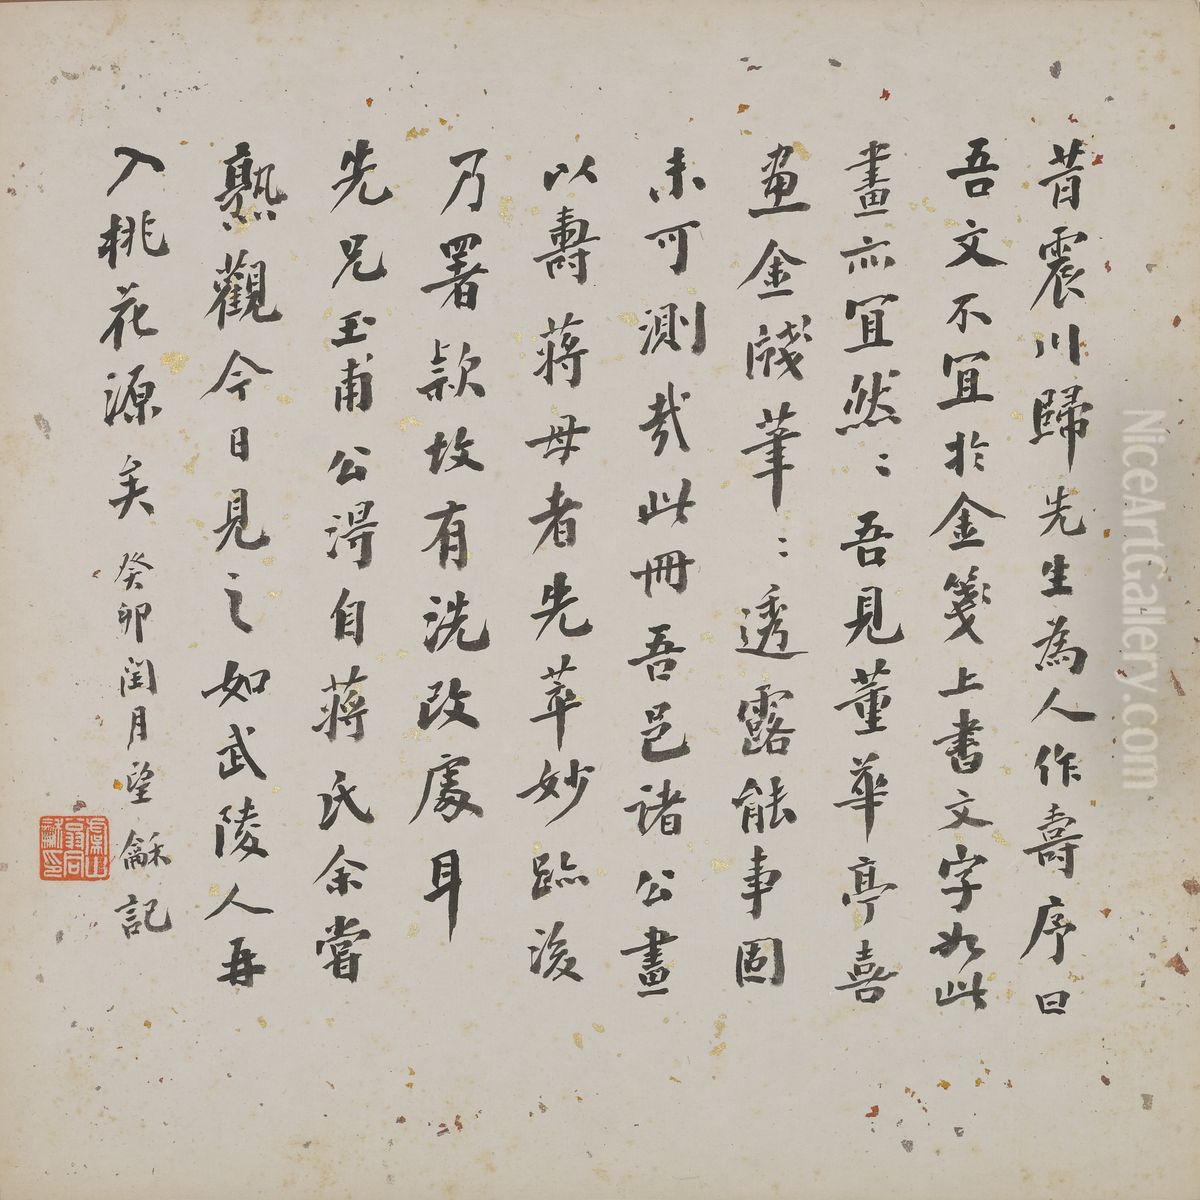 昔震川歸先生為人作壽序曰
吾文不宜於金箋上書文字如此
畫亦宜然〻吾見董華亭喜
畫金牋筆〻透露能事固
未可測哉此冊吾邑諸公畫
以壽蔣母者先莘妙跡後
乃署款故有洗改處耳
先兄玉甫公得自蔣氏余嘗
熟觀今日見之如武陵人再
入桃花源矣癸卯閏月望龢記
NiceArtGallery.com